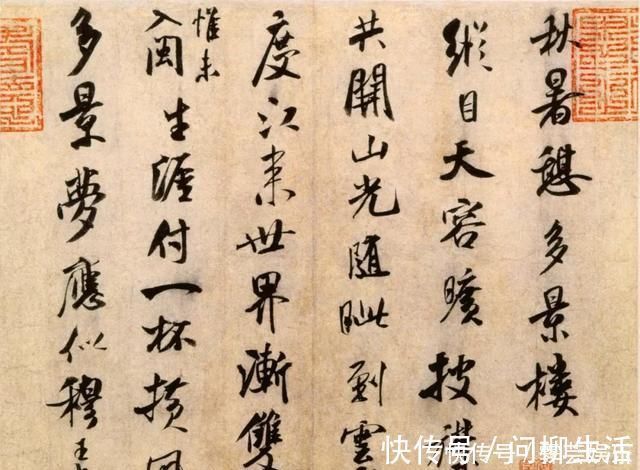 秋暑憩多景樓
縱目天容曠披襟
共開山光隨眺到雲
度江來世界漸雙
惟未
入閩生涯付一杯橫風
多景夢應似穆王
快传号 / 问柳生活